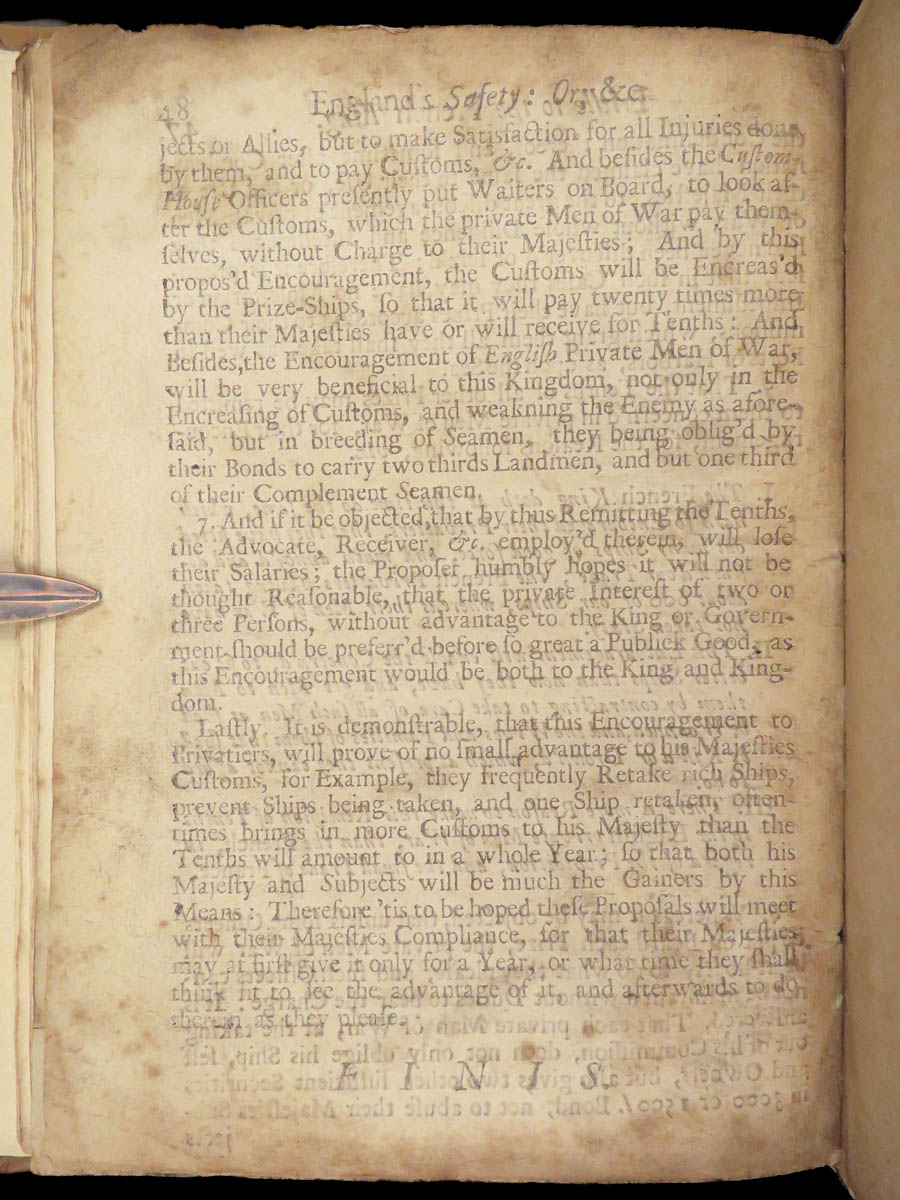 48 England's Safety: Or, &c.
jects or Allies, but to make Satisfaction for all Injuries done
by them, and to pay Customs, &c. And besides the Custom-
House Officers presently put Waiters on Board, to look af-
ter the Customs, which the private Men of War pay them-
selves, without Charge to their Majesties; And by this
propos'd Encouragement, the Customs will be Encreas'd
by the Prize-Ships, so that it will pay twenty times more
than their Majesties have or will receive for Tenths: And
Besides, the Encouragement of English Private Men of War,
will be very beneficial to this Kingdom, not only in the
Encreasing of Customs, and weakning the Enemy as afore-
said, but in breeding of Seamen, they being oblig'd by
their Bonds to carry two thirds Landmen, and but one third
of their Complement Seamen.
7. And if it be objected, that by thus Remitting the Tenths,
the Advocate, Receiver, &c. employ'd therein, will lose
their Salaries; the Proposer humbly hopes it will not be
thought Reasonable, that the private Interest of two or
three Persons, without advantage to the King or Govern-
ment should be preferr'd before so great a Publick Good, as
this Encouragement would be both to the King and King-
dom.
Lastly. It is demonstrable, that this Encouragement to
Privatiers, will prove of no small advantage to his Majesties
Customs, for Example, they frequently Retake rich Ships,
prevent Ships being taken, and one Ship retaken, often-
times brings in more Customs to his Majesty than the
Tenths will amount to in a whole Year; so that both his
Majesty and Subjects will be much the Gainers by this
Means: Therefore 'tis to be hoped these Proposals will meet
with their Majesties Compliance, for that their Majesties
may at first give it only for a Year, or what time they shall
think fit to see the advantage of it, and afterwards to do
therein as they please.
F I N I S.